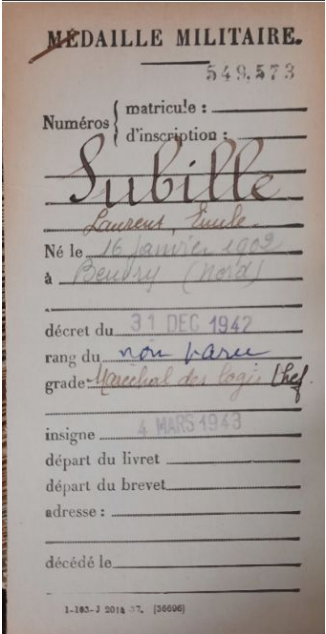 MÉDAILLE MILITAIRE.
549.573
Numéros
matricule :
d'inscription :
Subille
Laurent, Emile
Né le 16 janvier 1902
à Beuvry (Nord)
décret du 31 DEC 1942
rang du non paru
grade Maréchal des logis Chef
insigne 4 MARS 1943
départ du livret
départ du brevet
adresse :
décédé le